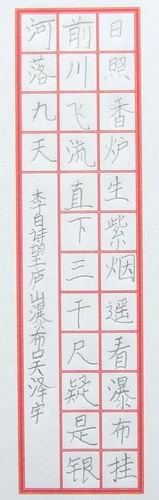 日照香炉生紫烟遥看瀑布挂
前川飞流直下三千尺疑是银
河落九天
李白诗望庐山瀑布吴泽宇